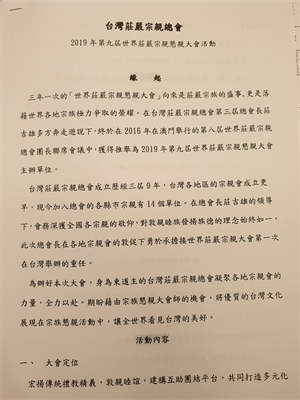 台灣莊嚴宗親總會
2019 年第九屆世界莊嚴宗親懇親大會活動
緣　起
三年一次的「世界莊嚴宗親懇親大會」向來是莊嚴宗族的盛事，更是落
籍世界各地宗族極力爭取的榮耀。在台灣莊嚴宗親總會第三屆總會長莊
吉雄多方奔走遊說下，終於在 2016 年在澳門舉行的第八屆世界莊嚴宗親
總會團長聯席會議中，獲得推舉為 2019 年第九屆世界莊嚴宗親懇親大會
主辦單位。
台灣莊嚴宗親總會成立歷經三屆 9 年，台灣各地區的宗親會成立更
早，現今加入總會的各縣市宗親有 14 個單位。在總會長莊吉雄的領導
下，會務深獲全國各宗親的敬仰，對敦親睦族發揚族德的理念始終如一，
此次總會長在各地宗親會的敦促下勇於承擔接世界莊嚴宗親大會第一次
在台灣舉辦的重任。
為辦好本次大會，身為東道主的台灣莊嚴宗親總會凝聚各地宗親會的
力量，全力以赴。期盼藉由宗族懇親大會師的機會，將優質的台灣文化
展現在宗族懇親活動中，讓全世界看見台灣的美好。
活動內容
一、　大會定位
宏揚傳統禮教精義，敦親睦誼，建構互助團結平台，共同打造多元化